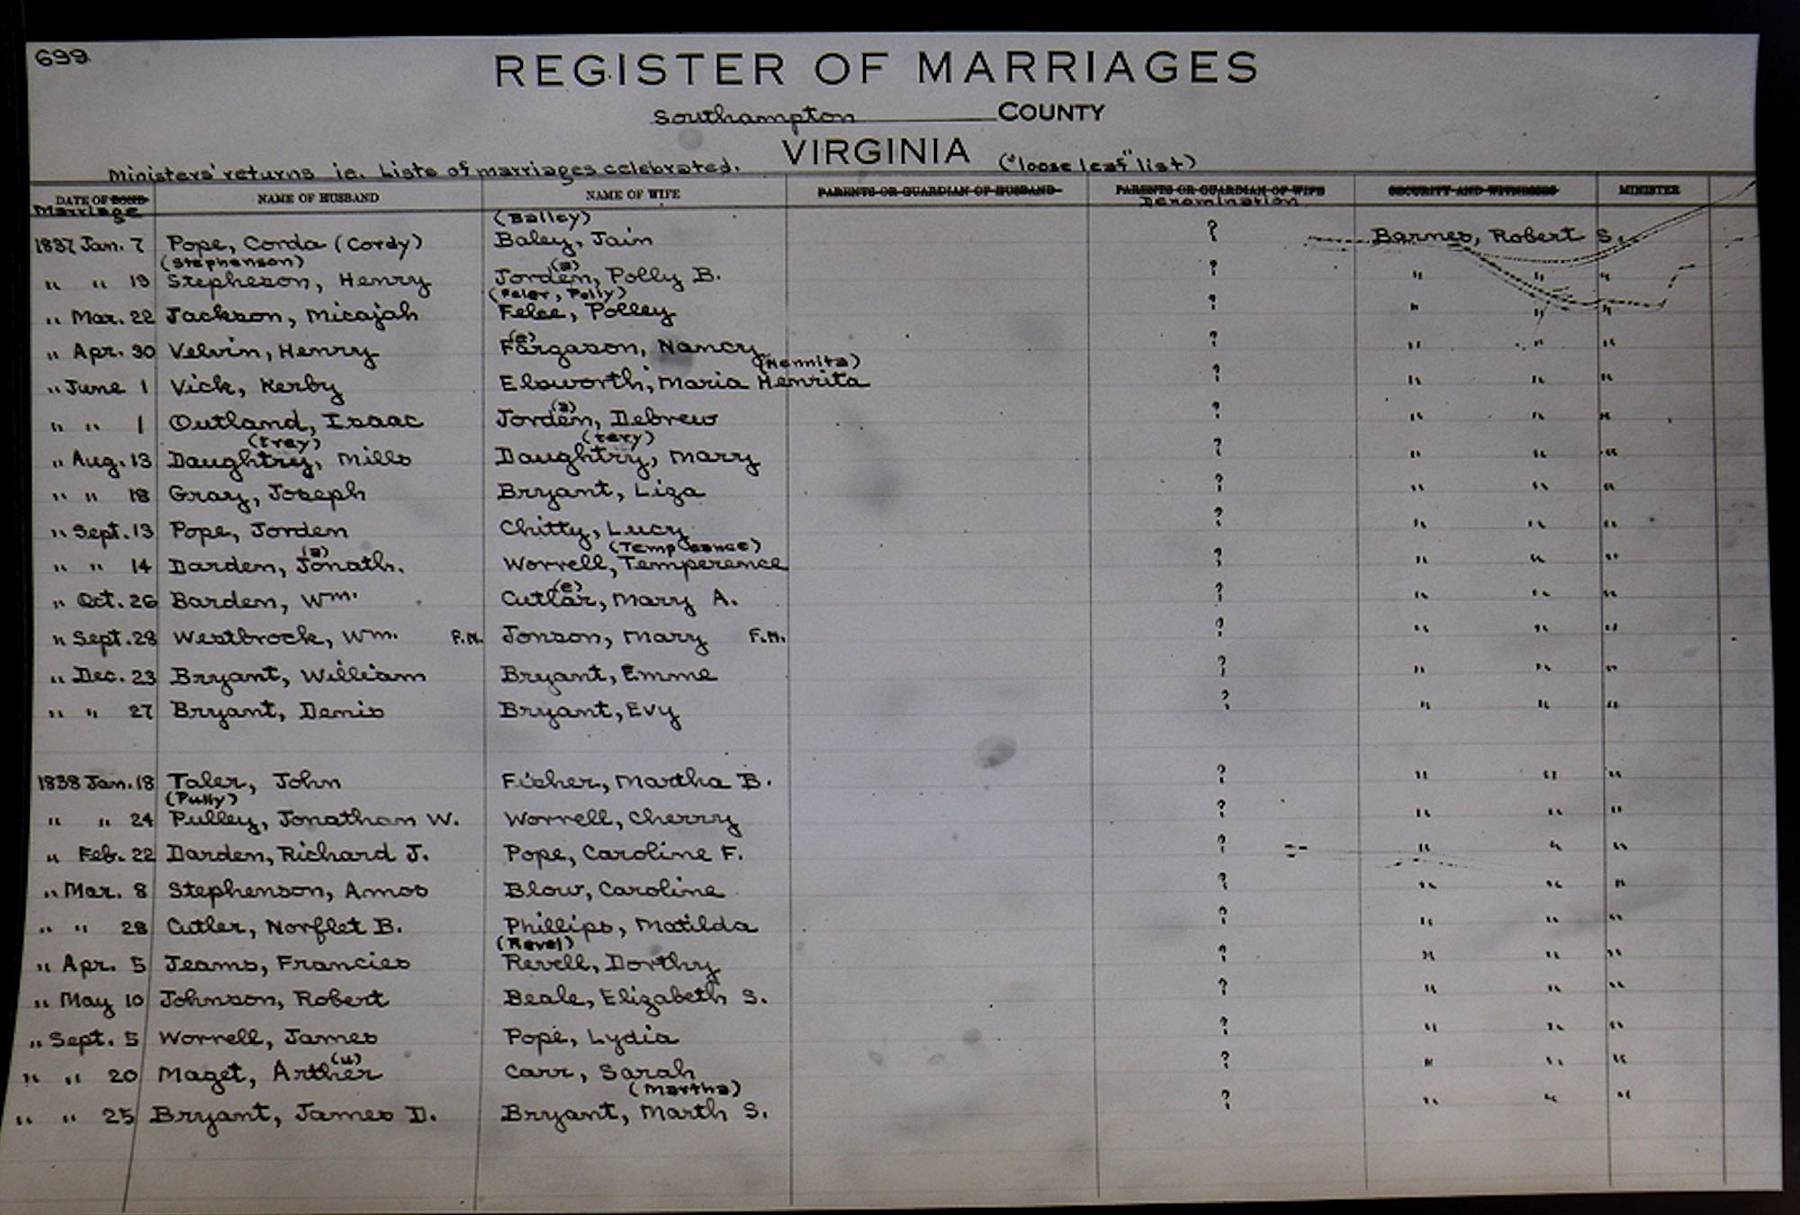 699
REGISTER OF MARRIAGES
Southampton COUNTY
VIRGINIA
Ministers' returns ie. Lists of marriages celebrated. ("loose leaf" list)
DATE OF BOND NAME OF HUSBAND NAME OF WIFE PARENTS OR GUARDIAN OF HUSBAND PARENTS OR GUARDIAN OF WIFE SECURITY AND WITNESSES MINISTER
Marriage Denomination
(Bailey)
1837 Jan. 7 Pope, Corda (Cordy) Baley, Jain ? Barnes, Robert S.
(Stephenson) (a)
" " 19 Stepheson, Henry Jorden, Polly B. ? " " "
(Feler, Polly)
" Mar. 22 Jackson, Micajah Felee, Polley ? " " "
(e)
" Apr. 30 Velvin, Henry Fargason, Nancy ? " " "
(Hennita)
" June 1 Vick, Kerby Elsworth, Maria Henrita ? " " "
(a)
" " 1 Outland, Isaac Jorden, Debrew ? " " "
(trey) (tery)
" Aug. 13 Daughtrey, Mills Daughtry, Mary ? " " "
" " 18 Gray, Joseph Bryant, Liza ? " " "
" Sept. 13 Pope, Jorden Chitty, Lucy ? " " "
(a) (Temperance)
" " 14 Darden, Jonath. Worrell, Temperence ? " " "
(e)
" Oct. 26 Barden, Wm. Cutlar, Mary A. ? " " "
" Sept. 28 Westbrock, Wm. F.N. Jonson, Mary F.N. ? " " "
" Dec. 23 Bryant, William Bryant, Emme ? " " "
" " 27 Bryant, Denis Bryant, Evy ? " " "
1838 Jan. 18 Taler, John Fisher, Martha B. ? " " "
(Pully)
" " 24 Pulley, Jonathan W. Worrell, Cherry ? " " "
" Feb. 22 Darden, Richard J. Pope, Caroline F. ? " " "
" Mar. 8 Stephenson, Amos Blow, Caroline ? " " "
" " 28 Cutler, Norflet B. Phillips, Matilda ? " " "
(Revel)
" Apr. 5 Jeams, Francies Revell, Dorthy ? " " "
" May 10 Johnson, Robert Beale, Elizabeth S. ? " " "
" Sept. 5 Worrell, James Pope, Lydia ? " " "
(u)
" " 20 Maget, Arther Carr, Sarah ? " " "
(Martha)
" " 25 Bryant, James D. Bryant, Marth S. ? " " "